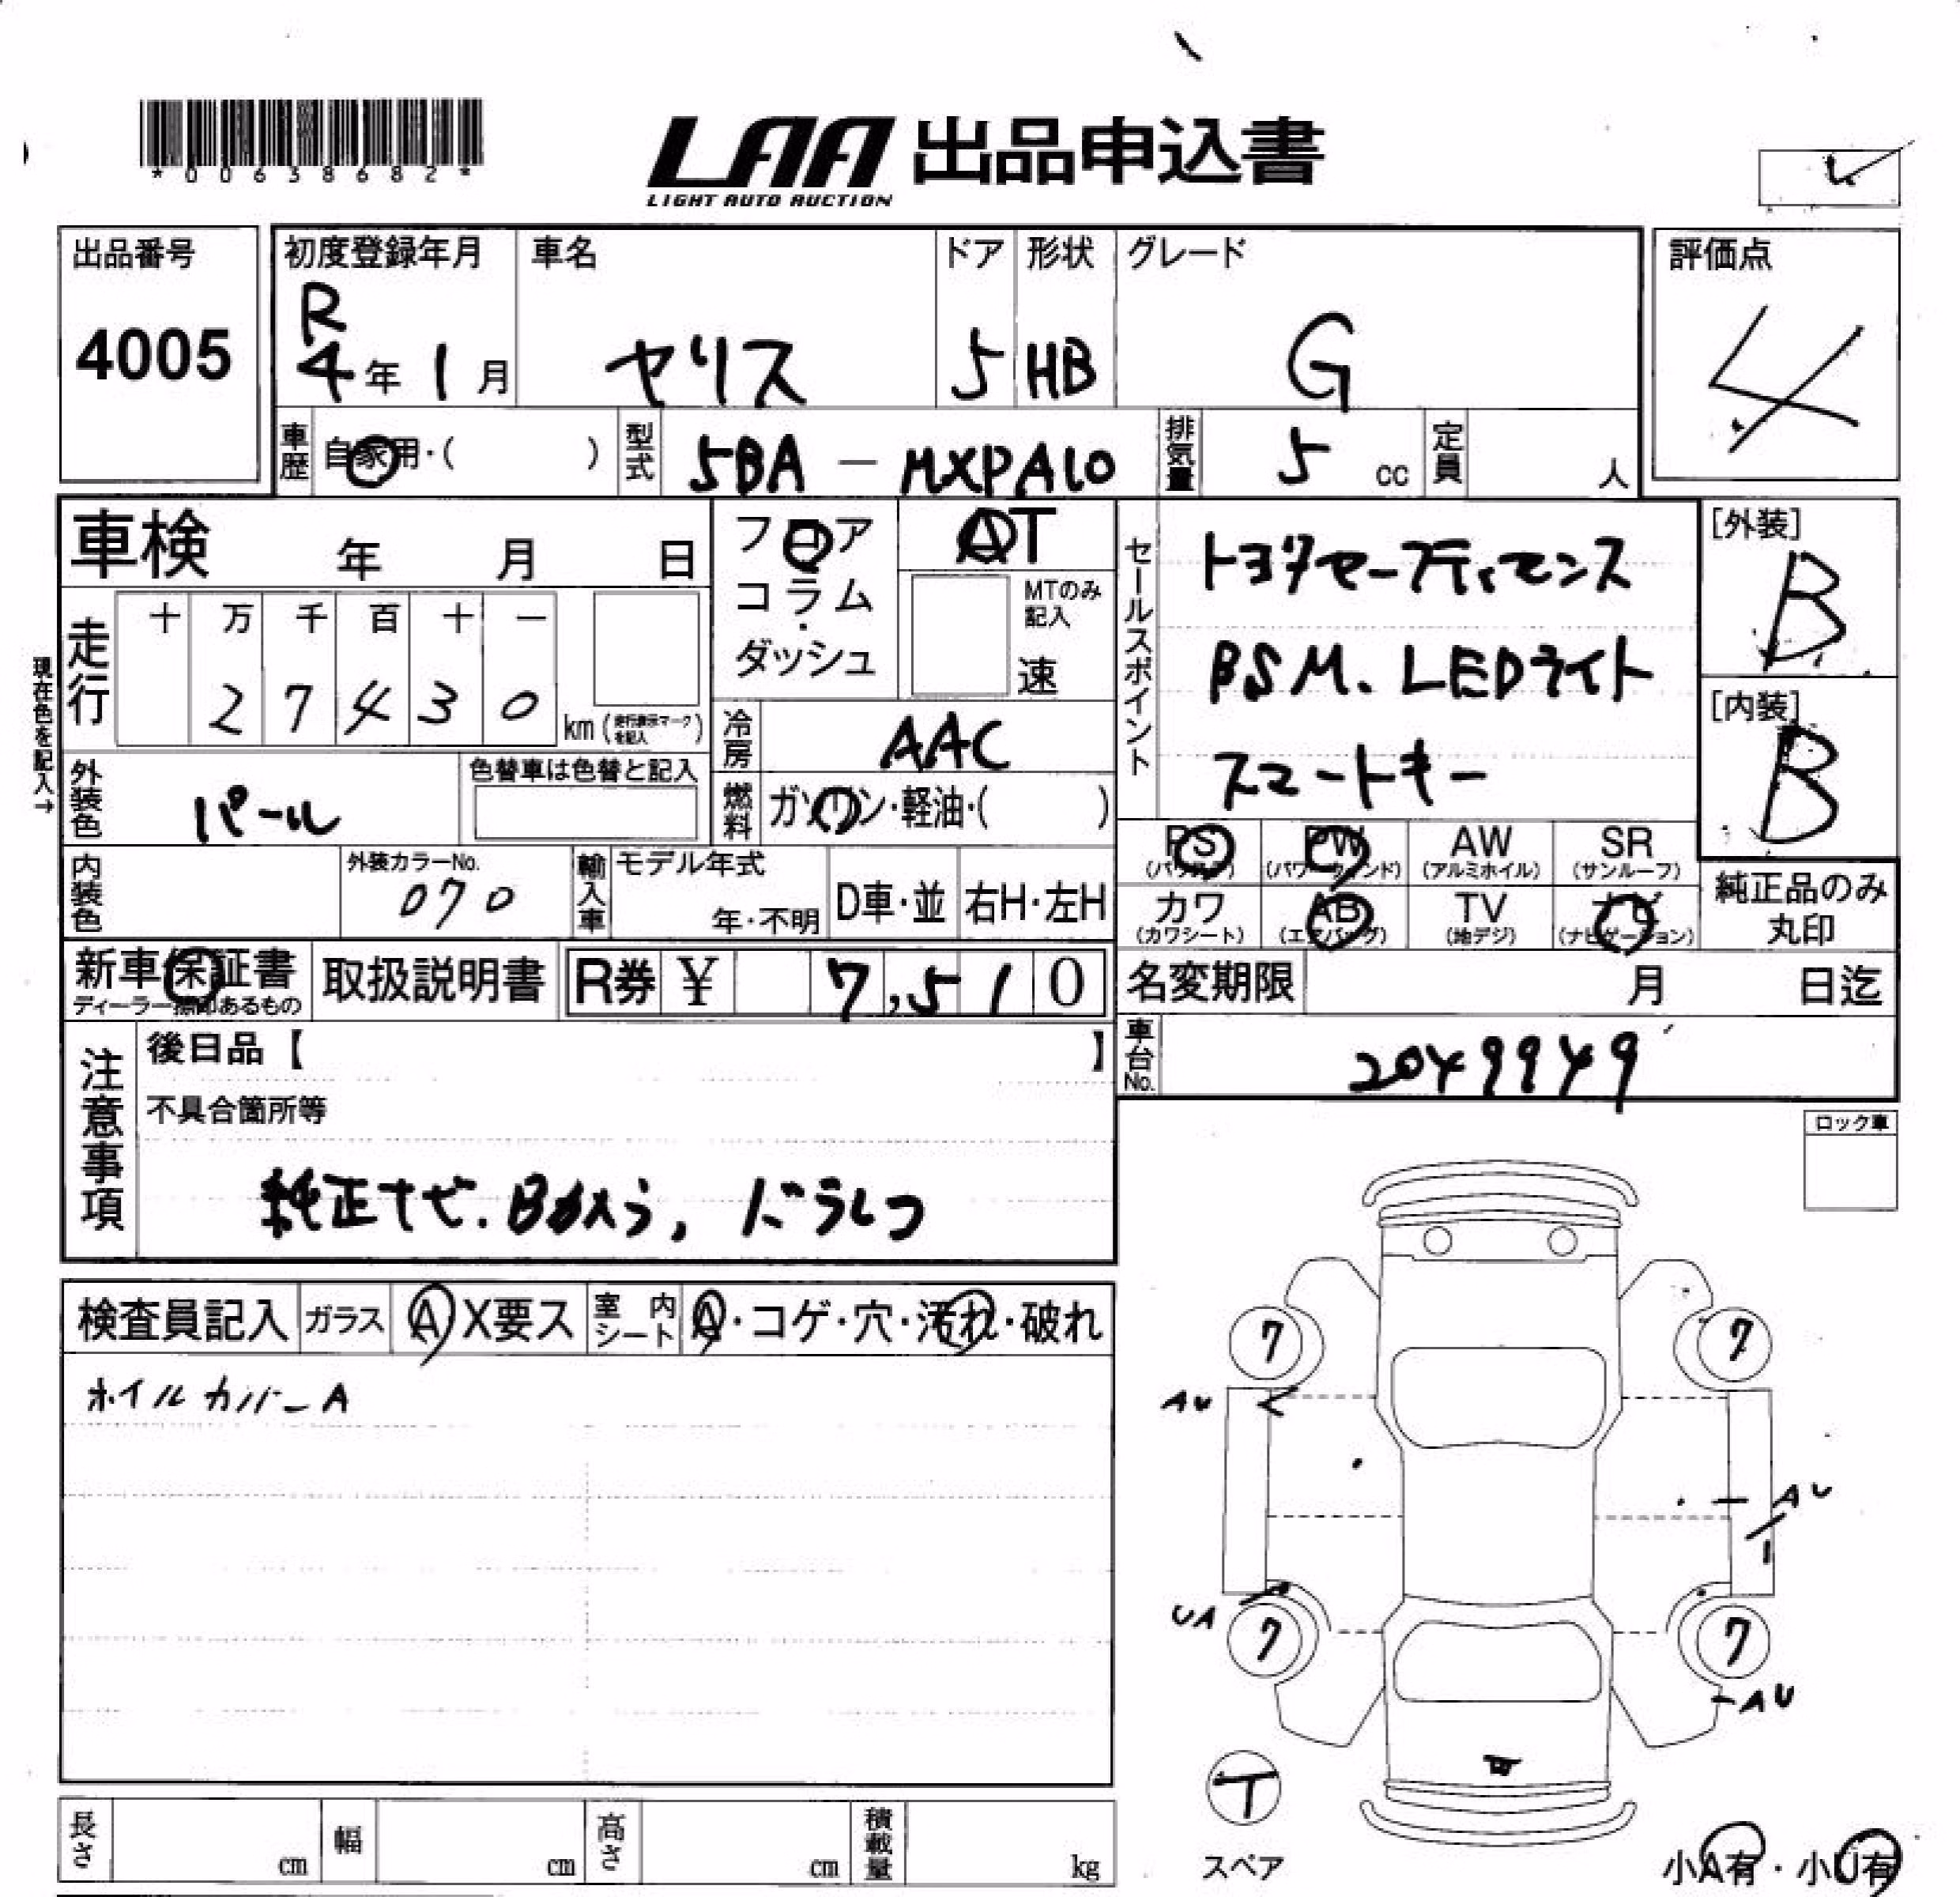 *00638682*
LAA 出品申込書
LIGHT AUTO AUCTION
出品番号
4005
初度登録年月
R
4年1月
車名
ヤリス
ドア
5
形状
HB
グレード
G
評価点
4
車歴
自家用・( )
型式
5BA - MXPA10
排気量
5 cc
定員
人
車検 年 月 日
フロア
コラム
・
ダッシュ
AT
MTのみ
記入
速
セールスポイント
トヨタセーフティセンス
BSM、LEDライト
スマートキー
[外装]
B
[内装]
B
現在色を記入→
走行
十 万 千 百 十 一
2 7 4 3 0
km (走行表示マークを記入)
冷房
AAC
外装色
パール
色替車は色替と記入
燃料
ガソリン・軽油・( )
PS
(パワステ)
PW
(パワーウィンド)
AW
(アルミホイル)
SR
(サンルーフ)
内装色
外装カラーNo.
070
輸入車
モデル年式
年・不明
D車・並
右H・左H
カワ
(カワシート)
AB
(エアバッグ)
TV
(地デジ)
ナビ
(ナビゲーション)
純正品のみ
丸印
新車保証書
ディーラー捺印あるもの
取扱説明書
R券 ¥ 7,510
名変期限 月 日迄
車台No.
2049949
注意事項
後日品【 】
不具合箇所等
純正ナビ.Bカメラ,ドラレコ
ロック車
検査員記入
ガラス
A X要ス
室内シート
A・コゲ・穴・汚れ・破れ
ホイルカバーA
7
7
AU
AU
UA
7
7
AU
T
スペア
小A有・小U有
長さ cm
幅 cm
高さ cm
積載量 kg